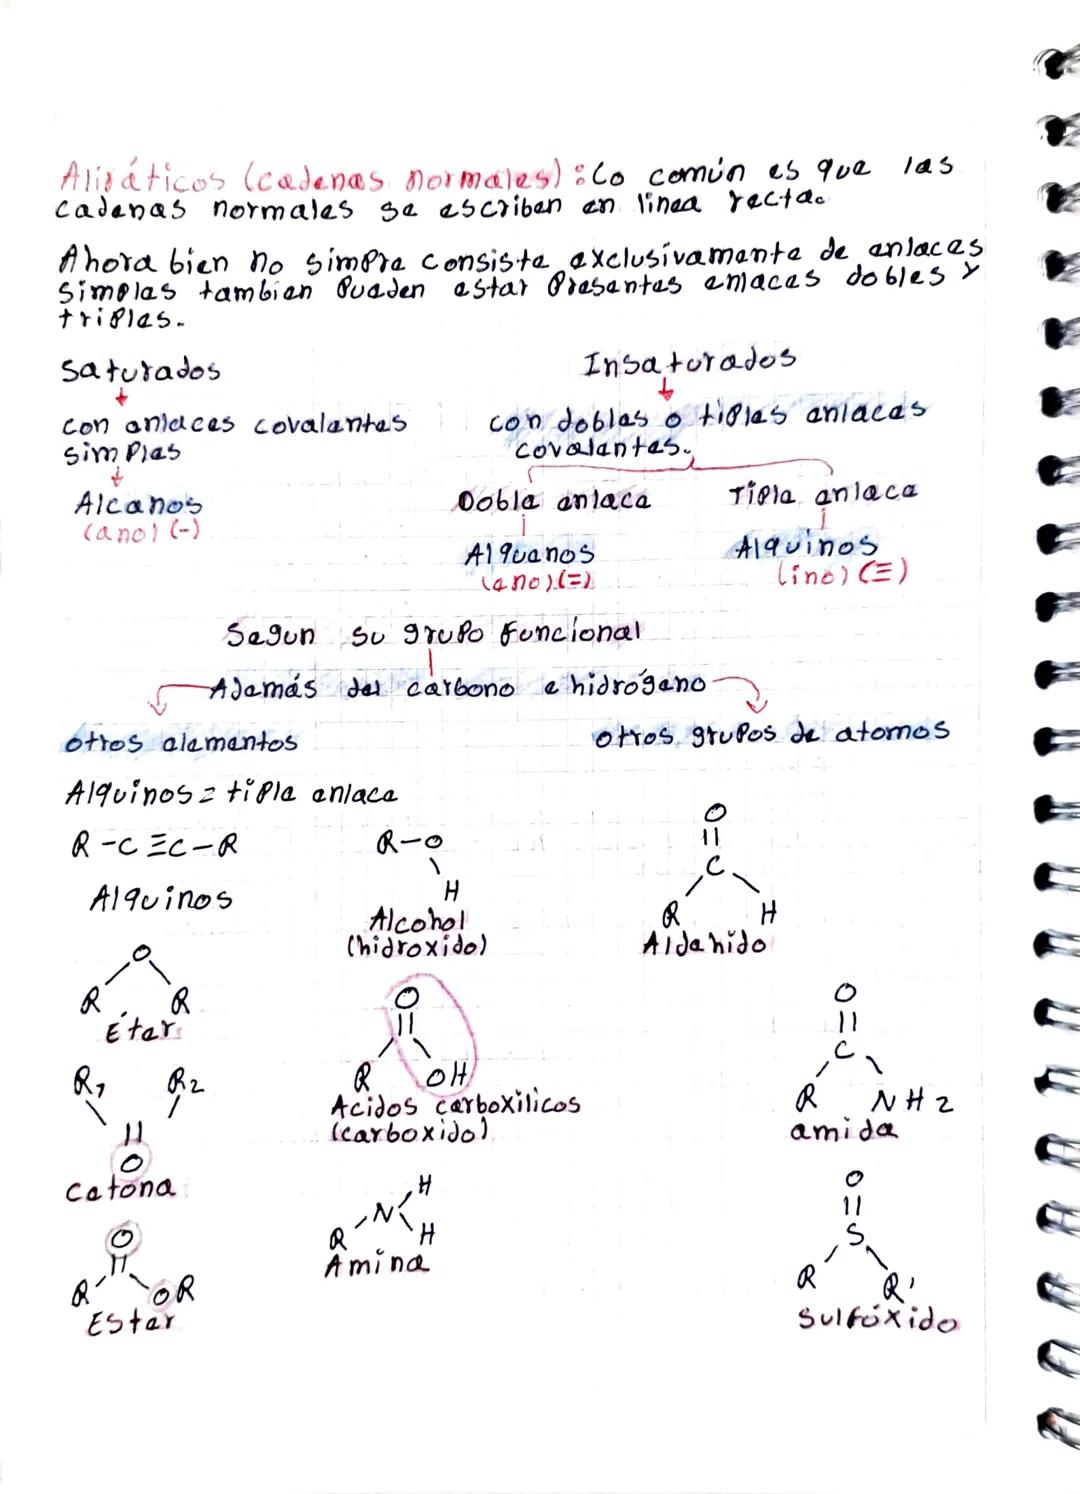 Alifáticos (cadenas normales): Lo común es que las
cadenas normales se escriban en linea recta.
Ahora bien no simpre consiste exclusívamente de enlaces
simples tambien pueden estar presentes enlaces dobles y
triples.
Saturados
Insaturados
con enlaces covalentes
simples
con dobles o tiples enlaces
covalentes.
Alcanos
(ano) (-)
Doble enlace
Tiple enlace
Alquenos
(eno) (=)
Alquinos
(ino) (≡)
Segun su grupo funcional
Además del carbono e hidrógeno
otros elementos
otros grupos de atomos
Alquinos = tiple enlace
R-C≡C-R
Alquinos
R-O
H
Alcohol
(hidroxido)
O
C
R H
Aldehido
O
R R
Éter
O
R OH
Acidos carboxilicos
(carboxido)
O
C
R NH2
amida
R1 R2
O
Cetona
H
R N
H
Amina
O
S
R R'
Sulfóxido
O
R OR
Ester